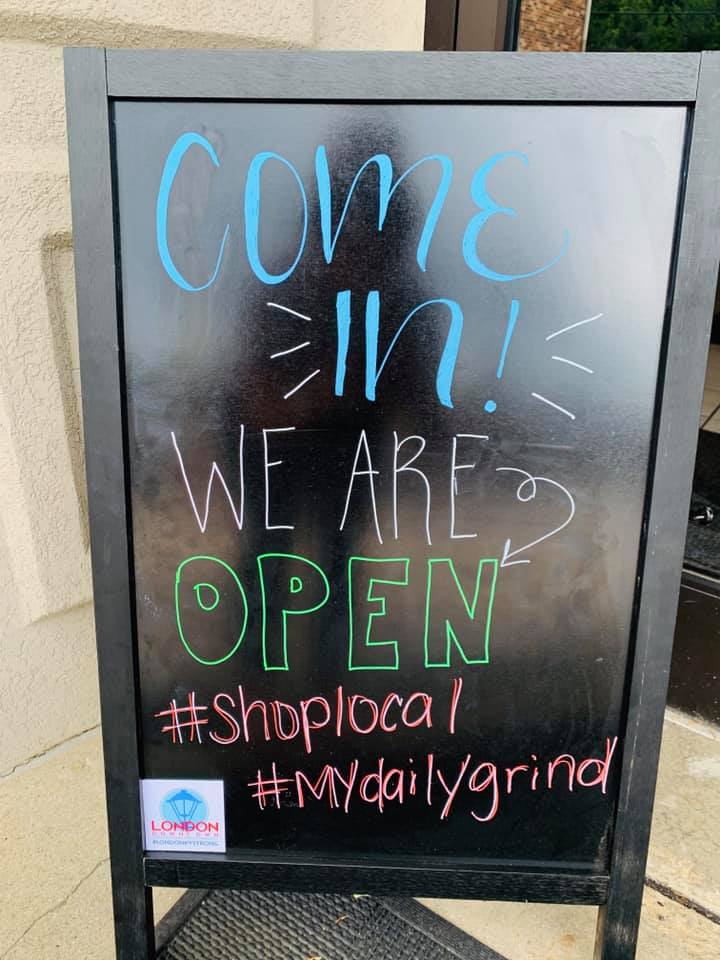 COME
IN!
WE ARE
OPEN
#Shoplocal
#MYdailygrind
LONDON
DOWNTOWN
#LONDONKYSTRONG